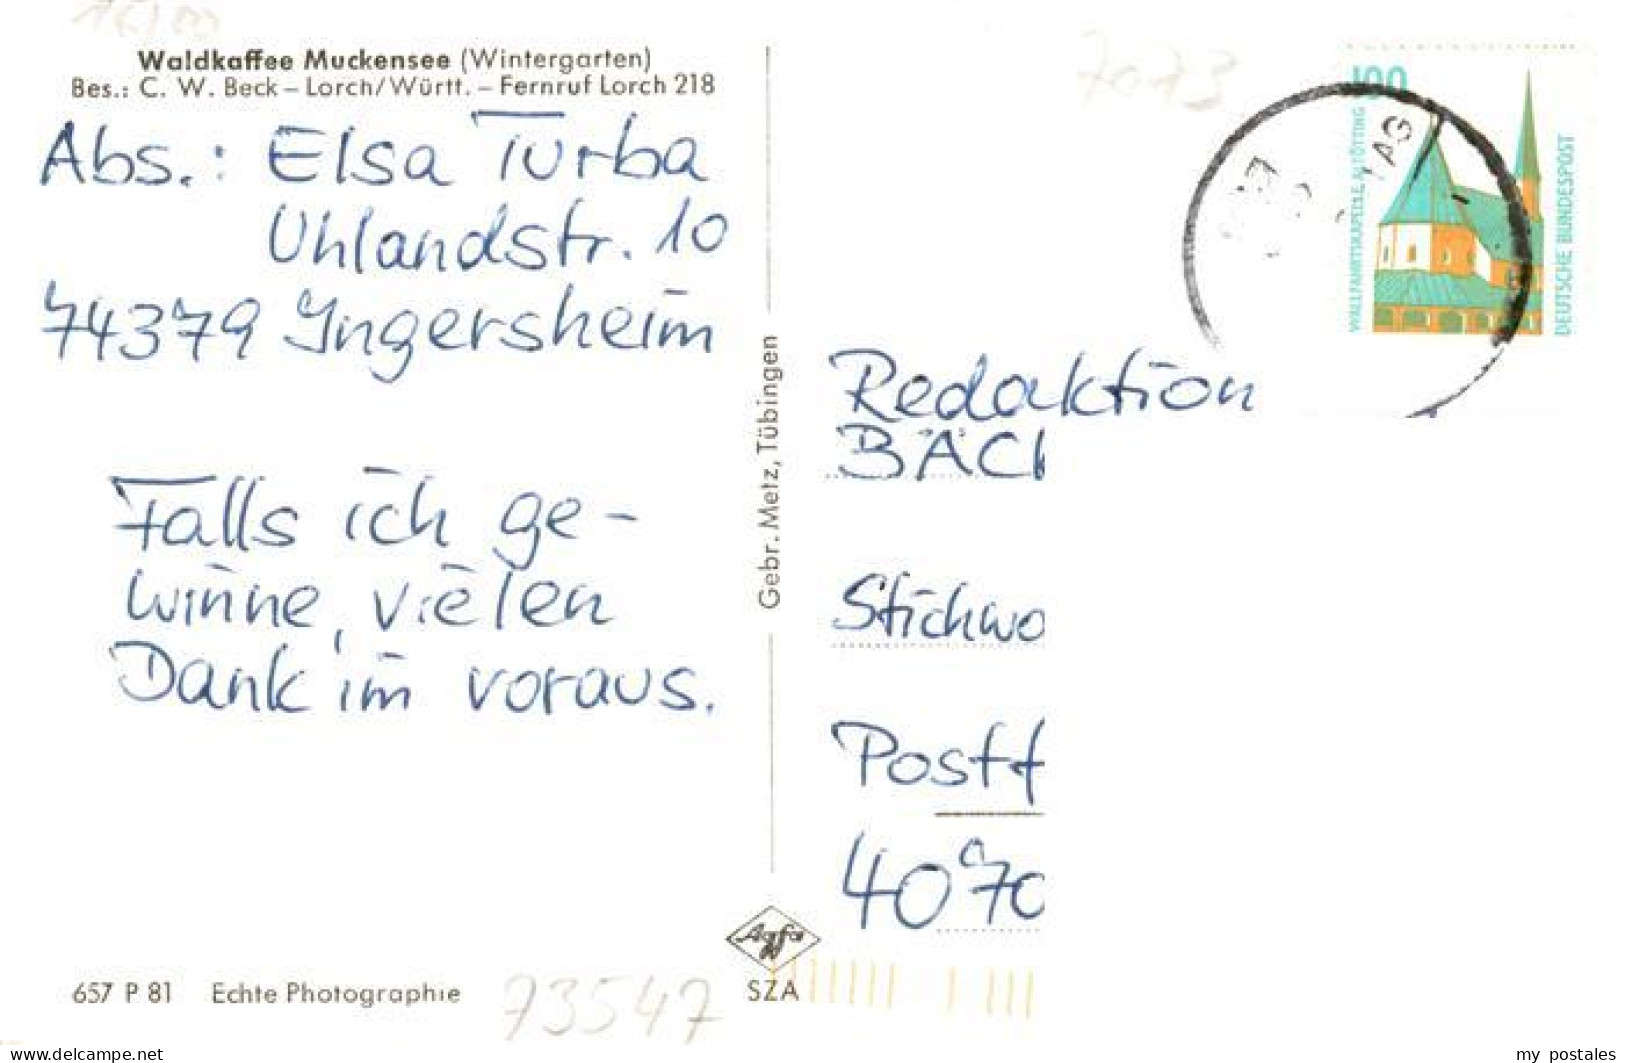 Waldkaffee Muckensee (Wintergarten)
Bes.: C. W. Beck – Lorch/Württ. – Fernruf Lorch 218
Abs.: Elsa Turba
Uhlandstr. 10
74379 Ingersheim
Falls ich ge-
winne, vielen
Dank im voraus.
657 P 81 Echte Photographie
73547
Gebr. Metz, Tübingen
Agfa
SZA
7073
100
WALLFAHRTSKAPELLE ALTÖTTING
DEUTSCHE BUNDESPOST
Redaktion
BÄC
Stichwo
Postf
4070
www.delcampe.net
my_postales